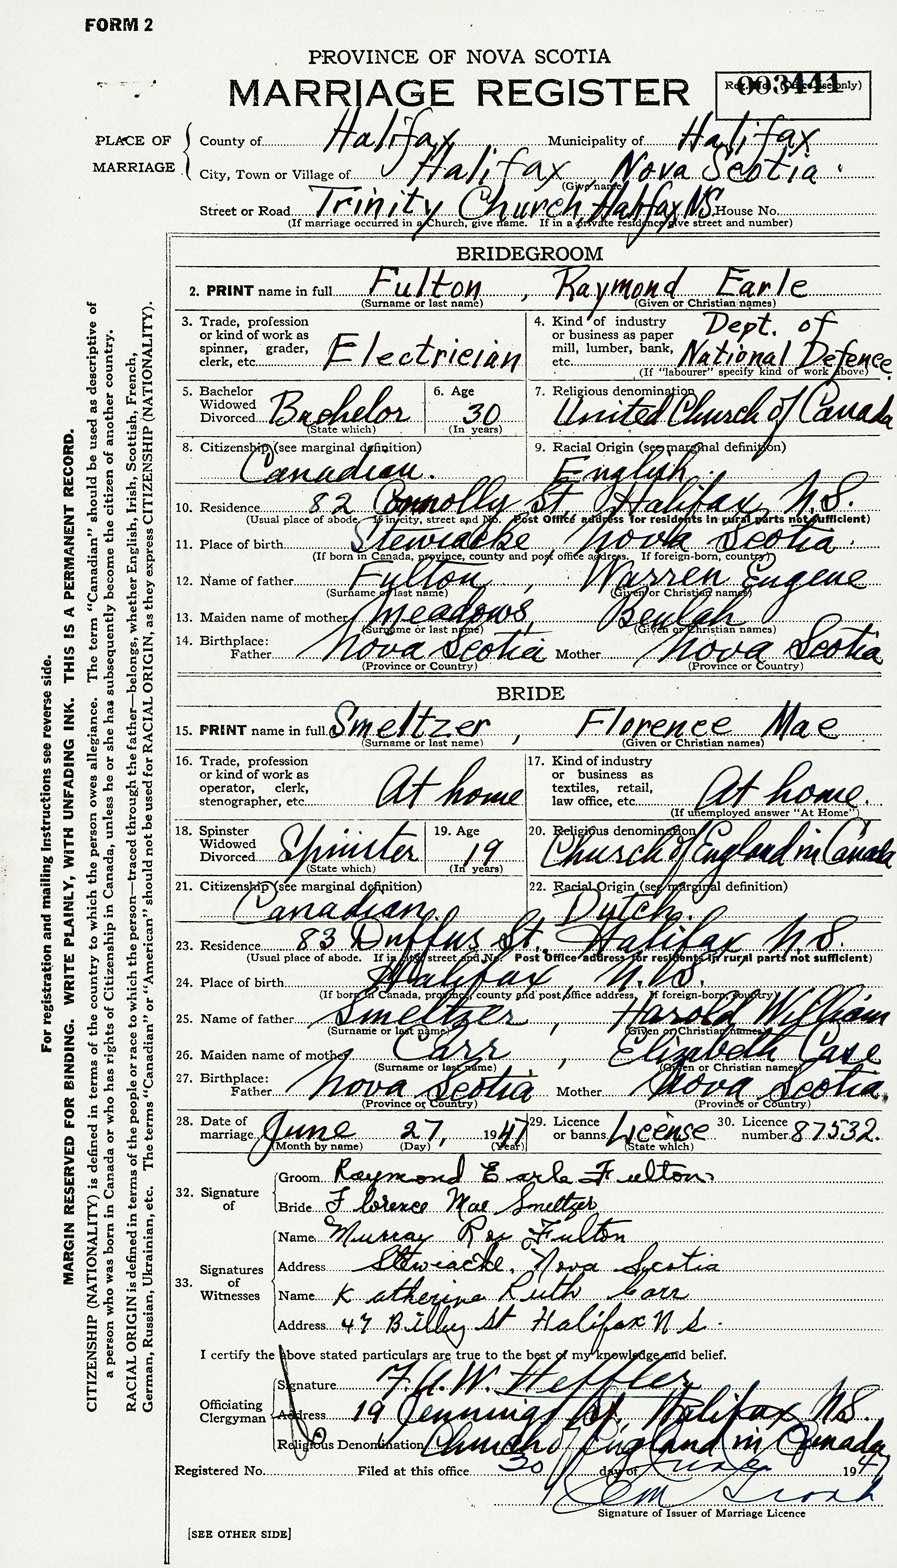 FORM 2
PROVINCE OF NOVA SCOTIA
MARRIAGE REGISTER
Reg. No. (Office use only)
003441
PLACE OF MARRIAGE
County of Halifax Municipality of Halifax
City, Town or Village of Halifax, Nova Scotia.
(Give name)
Street or Road Trinity Church, Halifax N.S. House No.
(If marriage occurred in a Church, give name. If in a private residence give street and number)
BRIDEGROOM
2. PRINT name in full Fulton , Raymond Earle
(Surname or last name) (Given or Christian names)
3. Trade, profession or kind of work as spinner, grader, clerk, etc. Electrician
4. Kind of industry or business as paper mill, lumber, bank, etc. Dept. of National Defence.
(If "labourer" specify kind of work above)
5. Bachelor Widowed Divorced Bachelor
(State which)
6. Age 30
(In years)
7. Religious denomination United Church of Canada
8. Citizenship (see marginal definition) Canadian.
9. Racial Origin (see marginal definition) English.
10. Residence 82 Connolly St. Halifax, N.S.
(Usual place of abode. If in city, street and No. Post Office address for residents in rural parts not sufficient)
11. Place of birth Stewiacke, Nova Scotia.
(If born in Canada, province, county and post office address. If foreign-born, country)
12. Name of father Fulton , Warren Eugene
(Surname or last name) (Given or Christian names)
13. Maiden name of mother Meadows, Beulah
(Surname or last name) (Given or Christian names)
14. Birthplace: Father Nova Scotia Mother Nova Scotia
(Province or Country) (Province or Country)
BRIDE
15. PRINT name in full Smeltzer , Florence Mae
(Surname or last name) (Given or Christian names)
16. Trade, profession or kind of work as operator, clerk, stenographer, etc. At home
17. Kind of industry or business as textiles, retail, law office, etc. At home.
(If unemployed answer "At Home")
18. Spinster Widowed Divorced Spinster
(State which)
19. Age 19
(In years)
20. Religious denomination Church of England in Canada
21. Citizenship (see marginal definition) Canadian.
22. Racial Origin (see marginal definition) Dutch.
23. Residence 83 Duffus St. Halifax N.S.
(Usual place of abode. If in city, street and No. Post Office address for residents in rural parts not sufficient)
24. Place of birth Halifax, N.S.
(If born in Canada, province, county and post office address. If foreign-born, country)
25. Name of father Smeltzer , Harold William
(Surname or last name) (Given or Christian names)
26. Maiden name of mother Carr , Elizabeth Case
(Surname or last name) (Given or Christian names)
27. Birthplace: Father Nova Scotia Mother Nova Scotia.
(Province or Country) (Province or Country)
28. Date of marriage June 27, 1947
(Month by name) (Day) (Year)
29. Licence or banns License
(State which)
30. Licence number 87532.
32. Signature of
Groom Raymond Earle Fulton
Bride Florence Mae Smeltzer
33. Signatures of Witnesses
Name Murray Fulton
Address Stewiacke, Nova Scotia
Name Katherine Ruth Carr
Address 47 St Halifax N S.
I certify the above stated particulars are true to the best of my knowledge and belief.
Officiating Clergyman
Signature F.A.W. Heffler
Address 19 Jennings St. Halifax N.S.
Religious Denomination Church of England in Canada
Registered No. Filed at this office 30 day of June 1947
Signature of Issuer of Marriage Licence
[SEE OTHER SIDE]
For registration and mailing instructions see reverse side.
MARGIN RESERVED FOR BINDING. WRITE PLAINLY, WITH UNFADING INK. THIS IS A PERMANENT RECORD.
CITIZENSHIP (NATIONALITY) is defined in terms of the country to which the person owes allegiance. The term "Canadian" should be used as descriptive of
a person who was born in Canada or who has rights of Citizenship in Canada, unless he or she has subsequently become the citizen of another country.
RACIAL ORIGIN is defined in terms of the people or race to which the person—traced through the father—belongs, whether English, Irish, Scottish, French,
German, Russian, Ukrainian, etc. The terms "Canadian" or "American" should not be used for RACIAL ORIGIN, as they express CITIZENSHIP (NATIONALITY).